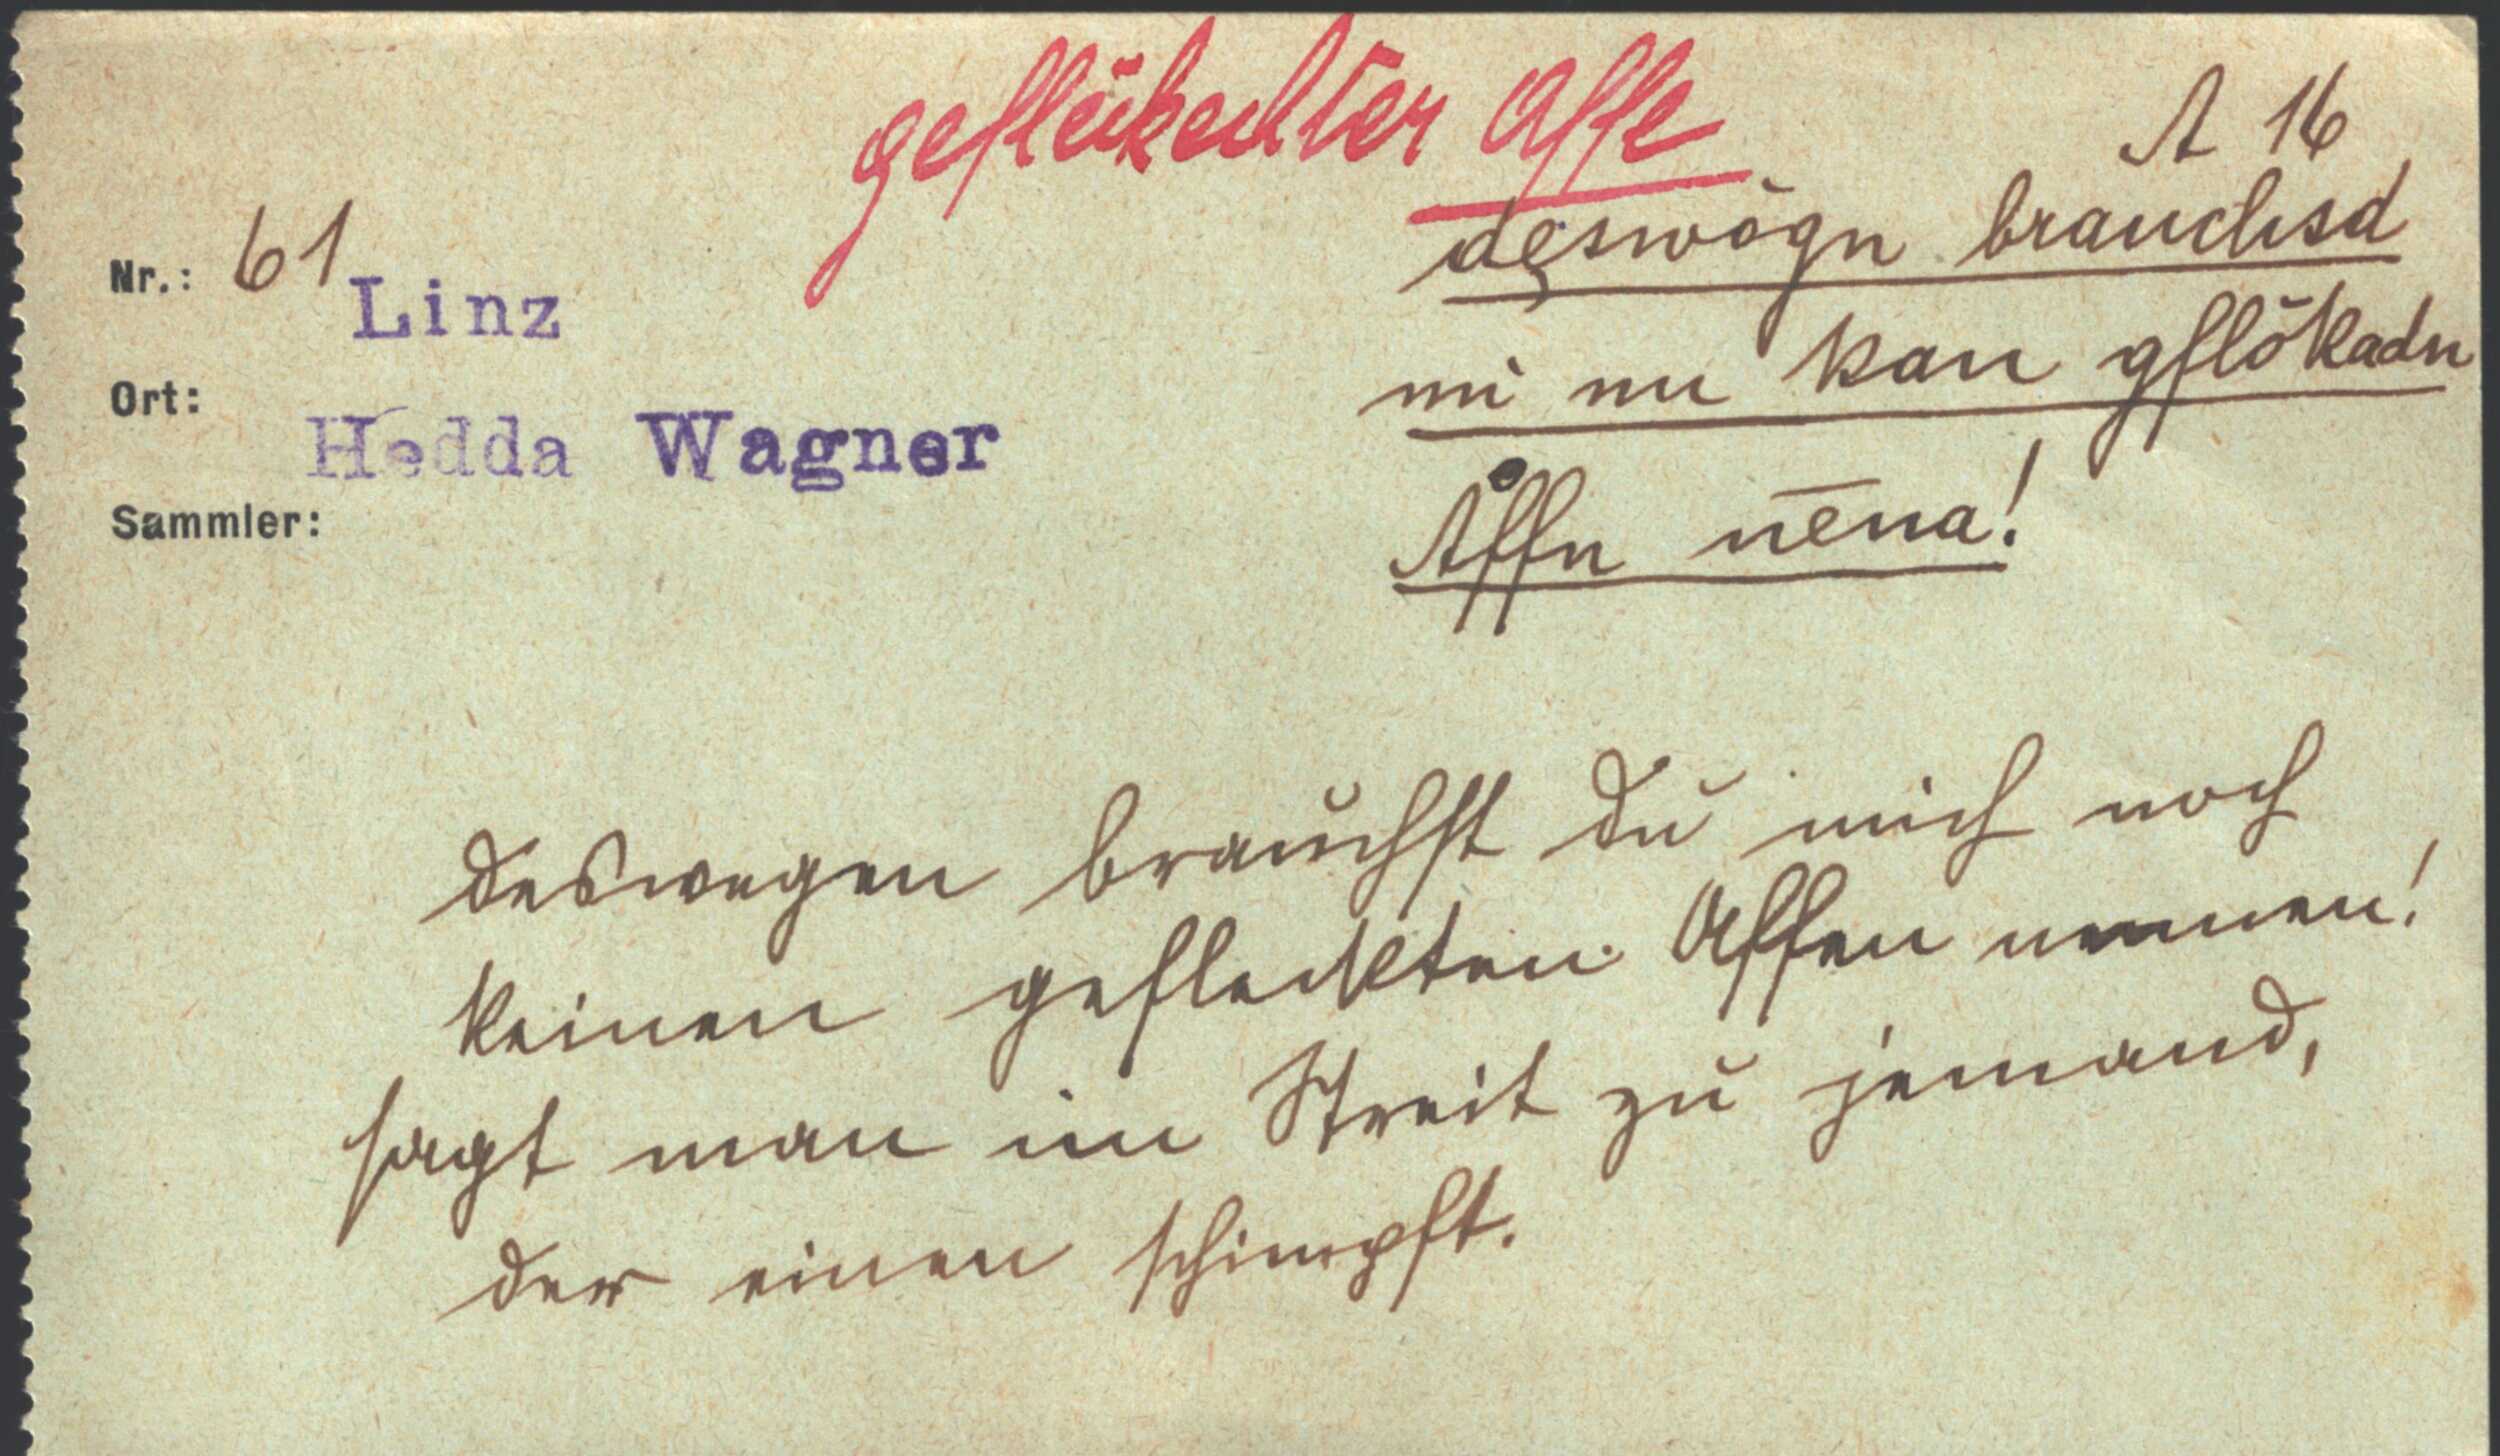 Affe
A 16
Nr.: 61
Linz
dęswögn brauchsd
mi nu kan gflökadn
Ort:
Hedda Wagner
Åffn nēna!
Sammler:
deswegen brauchst du mich noch
keinen gefleckten Affen nennen!
sagt man im Streit zu jemand,
der einen schimpft.